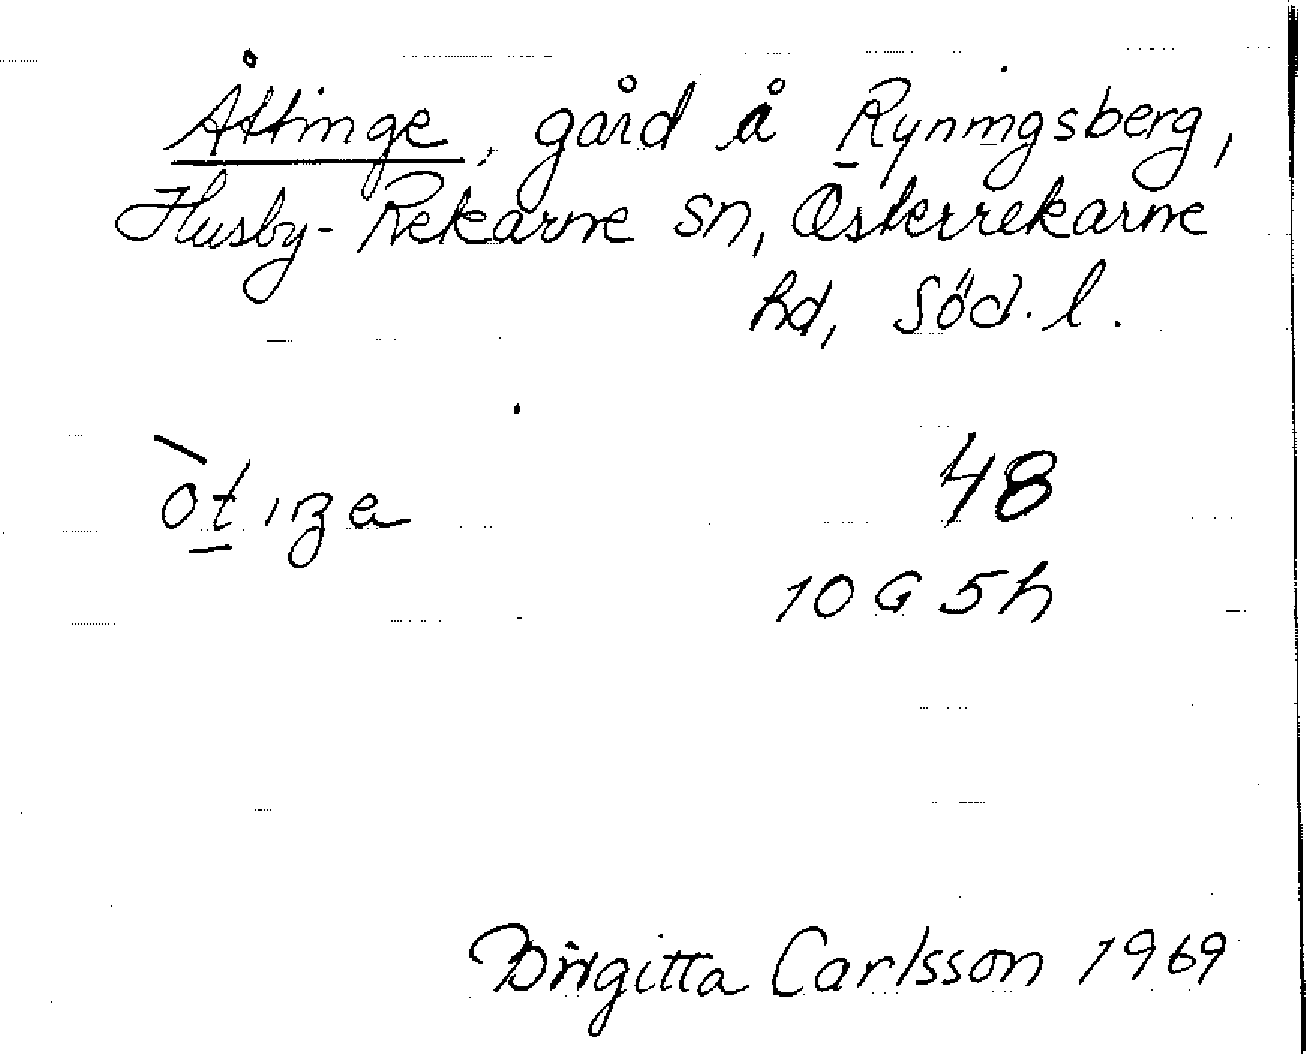 Åttinge, gård å Ryningsberg,
Husby-Rekarne sn, Österrekarne
hd, Söd. l.
òt̲ıŋe 48
10 G 5h
Birgitta Carlsson 1969